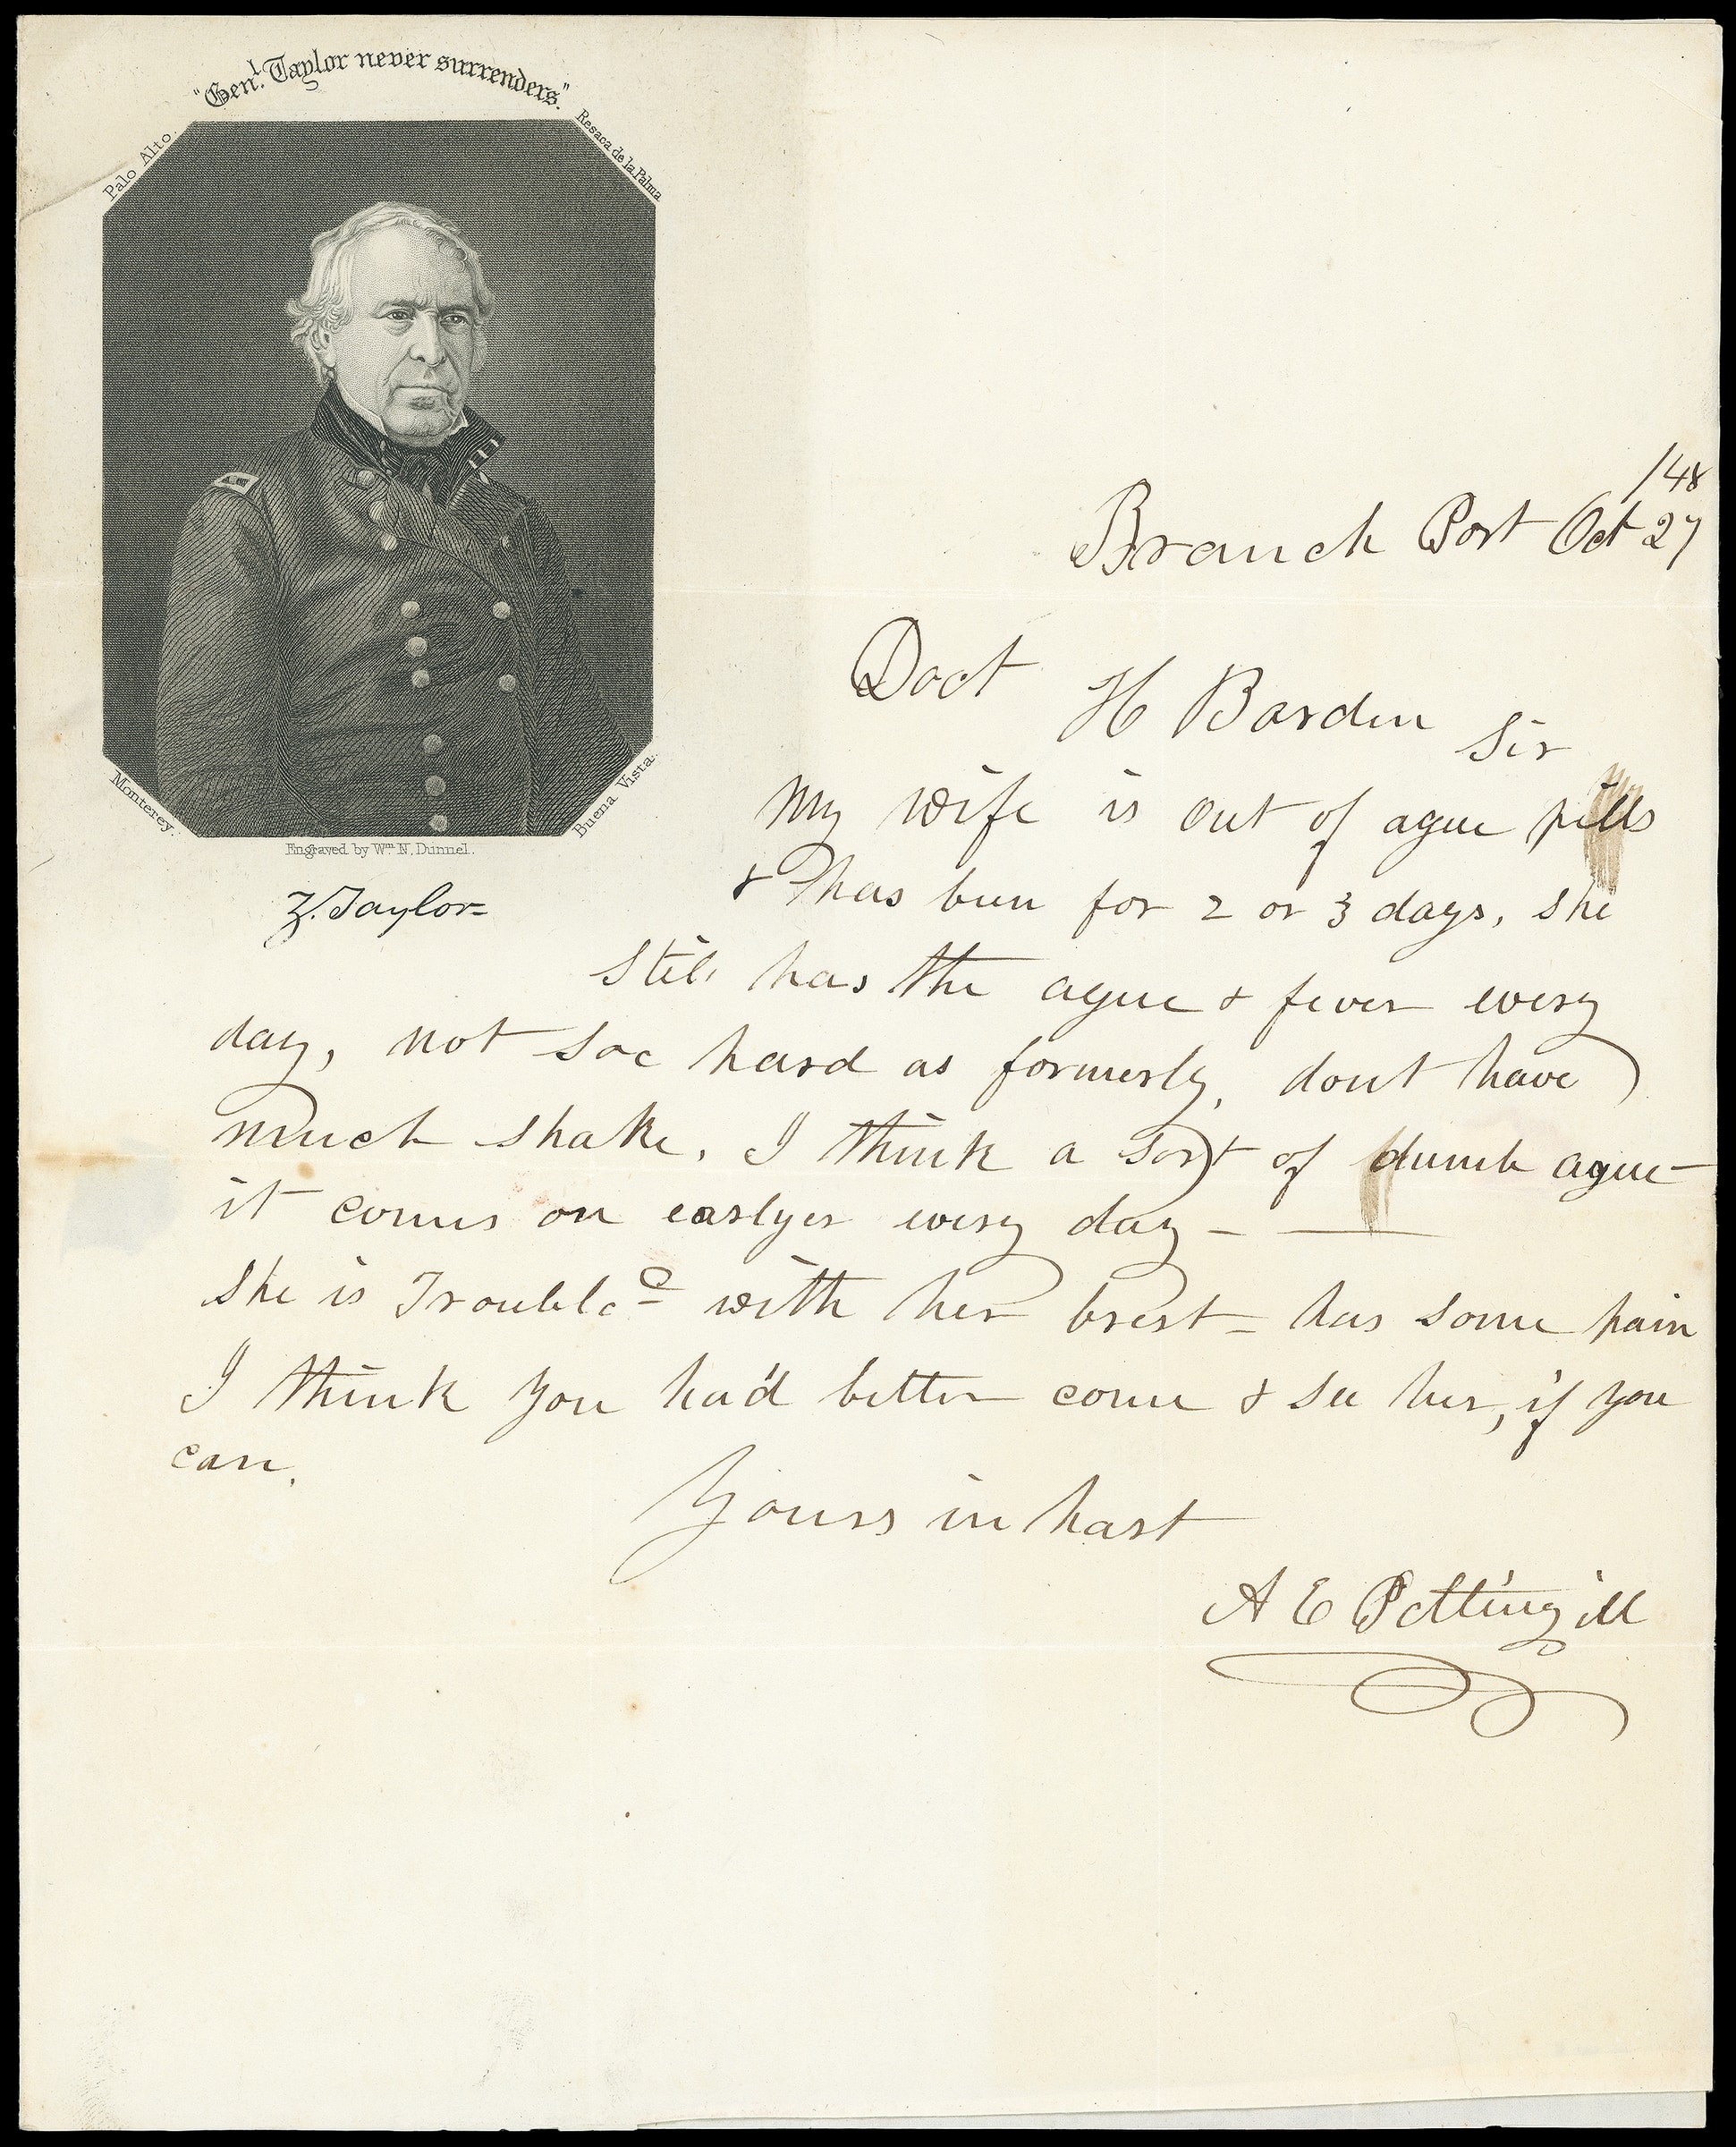 "Gen.l Taylor never surrenders."
Palo Alto.
Resaca de la Palma
Monterey.
Buena Vista.
Engraved by Wm. N. Dunnel.
Z. Taylor
/48
Branch Port Oct 27
Doct H Barden Sir
My wife is out of ague pills
& has been for 2 or 3 days, she
still has the ague & fever every
day, not soe hard as formerly, dont have
much shake, I think a sort of dumb ague
it comes on earlyer every day —
She is Trouble d with her brest - has some pain
I think you had better come & see her, if you
can.
Yours in hast
A E Pettingill